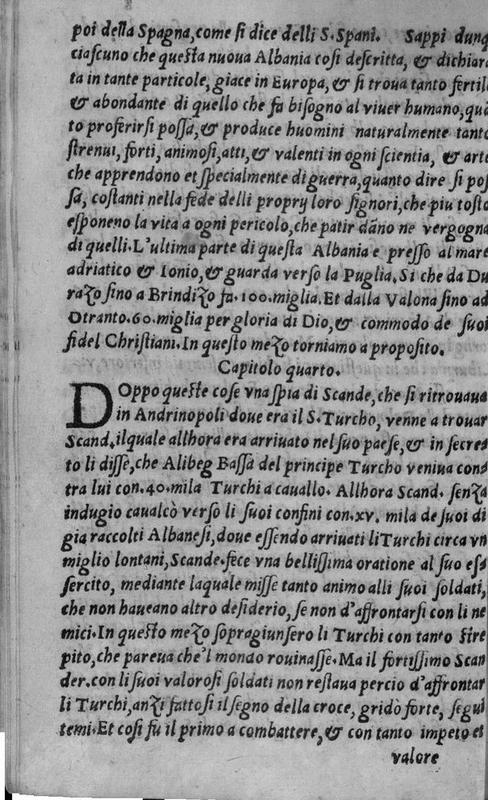 poi della Spagna, come si dice delli S. Spani. Sappi dunq
ciascuno che questa nuoua Albania cosi descritta, & dichiara
ta in tante particole, giace in Europa, & si troua tanto fertil
& abondante di quello che fa bisogno al viuer humano, quã
to proferirsi possa, & produce huomini naturalmente tanto
strenui, forti, animosi, atti, & valenti in ogni scientia, & arte
che apprendono et specialmente di guerra, quanto dire si pos
sa, costanti nella fede delli proprij loro signori, che piu tosto
esponeno la vita a ogni pericolo, che patir dãno ne vergogna
di quelli. L'ultima parte di questa Albania e presso al mare
adriatico & Ionio, & guarda verso la Puglia, Si che da Du
razo sino a Brindizo fa. 100. miglia. Et dalla Valona sino ad
Otranto. 60. miglia per gloria di Dio, & commodo de suoi
fidel Christiani. In questo mezo torniamo a proposito.
Capitolo quarto.
DOppo queste cose vna spia di Scande, che si ritrouaua
in Andrinopoli doue era il S. Turcho, venne a trouar
Scand. ilquale allhora era arriuato nel suo paese, & in secre
to li disse, che Alibeg Bassa del principe Turcho veniua con
tra lui con. 40. mila Turchi a cauallo. Allhora Scand. senza
indugio caualcò verso li suoi confini con. xv. mila de suoi di
gia raccolti Albanesi, doue essendo arriuati li Turchi circa vn
miglio lontani, Scande. fece vna bellissima oratione al suo es
sercito, mediante laquale misse tanto animo alli suoi soldati,
che non haueano altro desiderio, se non d'affrontarsi con li ne
mici. In questo mezo sopragiunsero li Turchi con tanto stre
pito, che pareua che'l mondo rouinasse. Ma il fortissimo Scan
der. con li suoi valorosi soldati non restaua percio d'affrontar
li Turchi, anzi fattosi il segno della croce, gridò forte, segui
temi. Et cosi fu il primo a combattere, & con tanto impeto et
valore